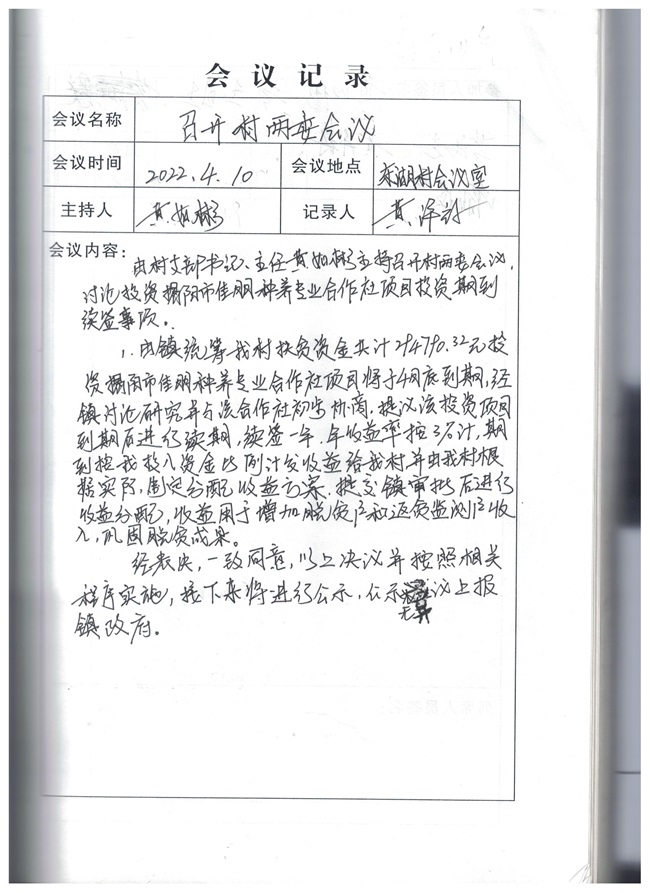 会议记录
会议名称 召开村两委会议
会议时间 2022.4.10 会议地点 东湖村会议室
主持人 黄如彬 记录人 黄泽
会议内容：
由村支部书记、主任黄如彬主持召开村两委会议，
讨论投资揭阳市佳朋种养专业合作社项目投资期到
续签事项。
1.由镇统筹我村扶贫资金共计294790.32元投
资揭阳市佳朋种养专业合作社项目将于4月底到期，经
镇讨论研究并与该合作社初步协商，提议该投资项目
到期后进行续期，续签一年，年收益率按3%计，期
到按我投入资金比例计发收益给我村并由我村根
据实际，制定分配收益方案，提交镇审批后进行
收益分配，收益用于增加脱贫户和返贫监测户收
入，巩固脱贫成果。
经表决，一致同意，以上决议并按照相关
程序实施，接下来将进行公示，公示无异议上报
镇政府。